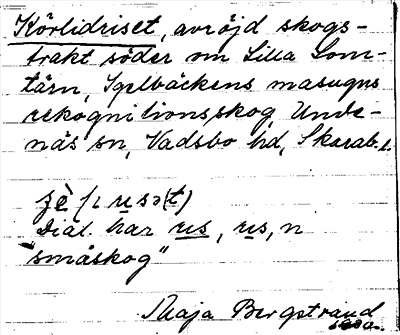 Körlidriset, avröjd skogs-
trakt söder om Lilla Lom-
tärn, Igelbäckens masugns
rekognitionsskog, Unde-
näs sn, Vadsbo hd, Skarab. l.
Dial. har us, us, n
"småskog"
Maja Bergstrand